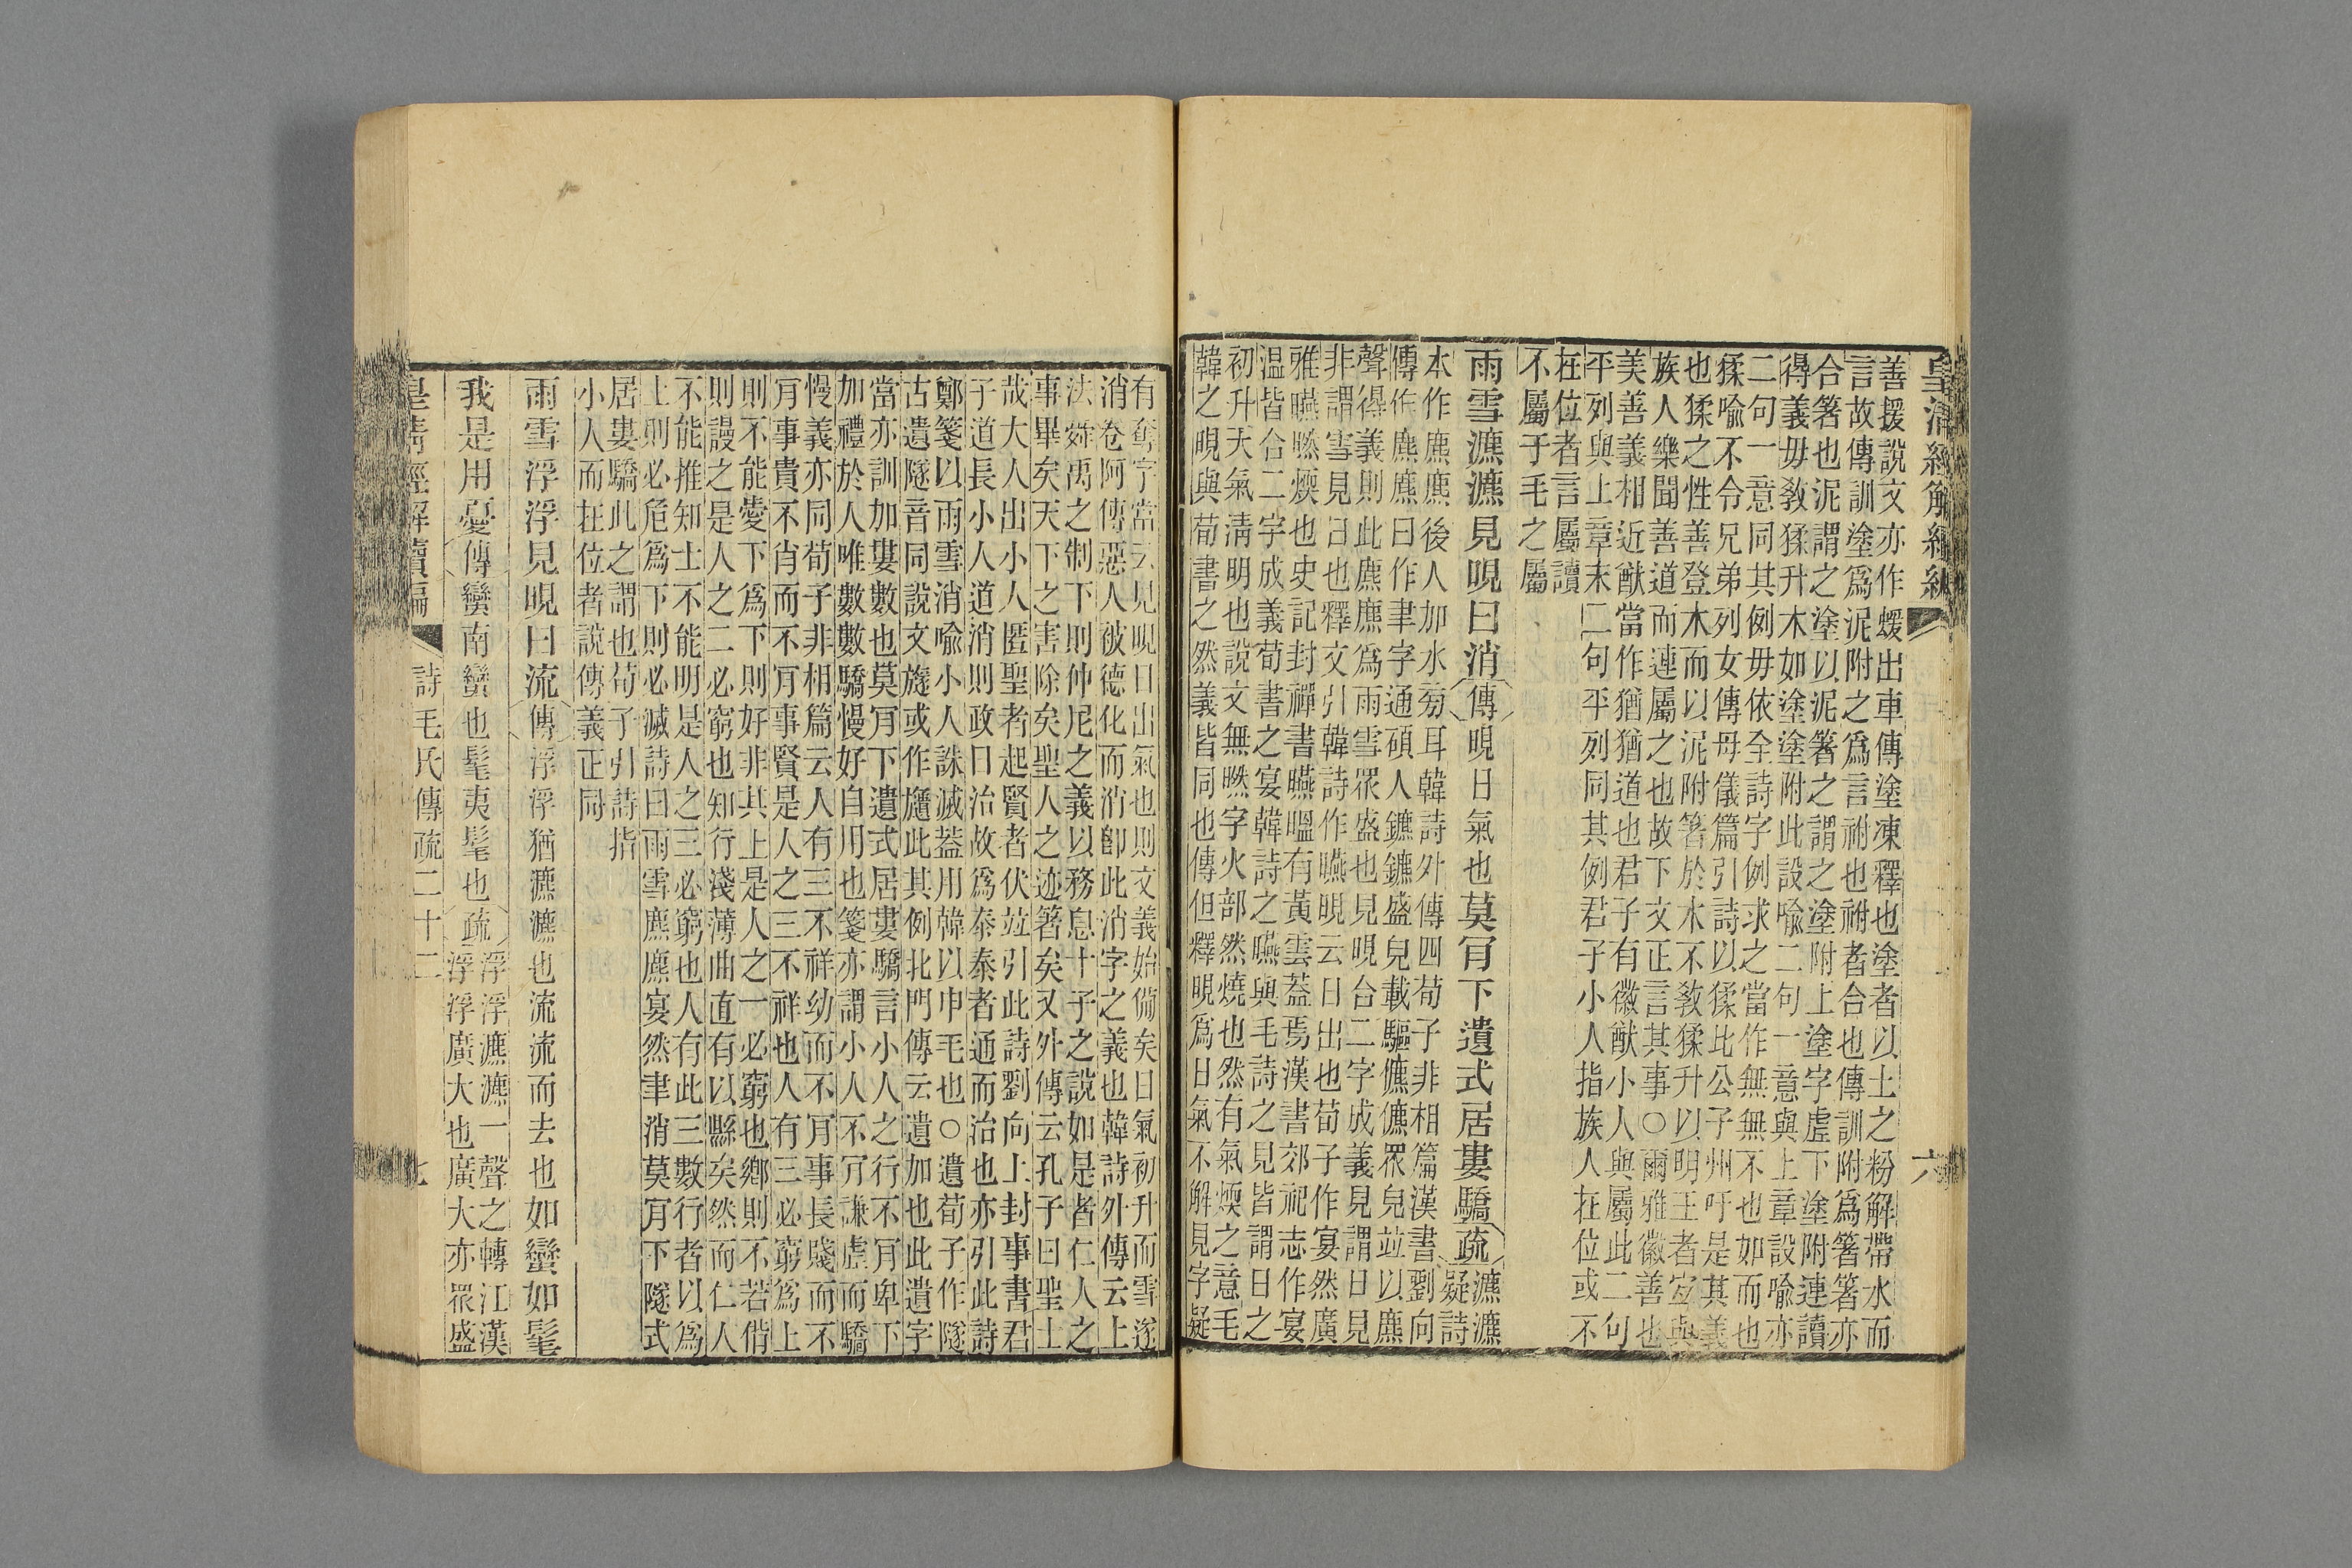 皇清經解續編
六
善援說文亦作煖出車傳塗凍釋也塗者以土之粉解帶水而
言故傳訓塗爲泥附之爲言祔也祔者合也傳訓附爲箸箸亦
合箸也泥謂之塗以泥箸之謂之塗附上塗字虛下塗附連讀
得義毋敎猱升木如塗塗附此設喩二句一意與上章設喩亦
二句一意同其例毋依全詩字例求之當作無無不也如而也
猱喩不令兄弟列女傳母儀篇引詩以猱比公子州吁是其義
也猱之性善登木而以泥附箸於木不敎猱升以明王者宐與
族人樂聞善道而連屬之也故下文正言其事○爾雅徽善也
美善義相近猷當作猶猶道也君子有徽猷小人與屬此二句
平列與上章末二句平列同其例君子小人指族人在位或不
在位者言屬讀
不屬于毛之屬
雨雪瀌瀌見晛曰消傳晛日氣也莫肎下遺式居婁驕疏瀌瀌
疑詩
本作麃麃後人加水旁耳韓詩外傳四荀子非相篇漢書劉向
傳作麃麃曰作聿字通碩人鑣鑣盛皃載驅儦儦衆皃竝以麃
聲得義則此麃麃爲雨雪衆盛也見晛合二字成義見謂日見
非謂雪見日也釋文引韓詩作曣晛云日出也荀子作宴然廣
雅曣㬗煗也史記封禪書曣㬈有黃雲蓋焉漢書郊祀志作宴
温皆合二字成義荀書之宴韓詩之曣與毛詩之見皆謂日之
初升天氣淸明也說文無㬗字火部然燒也然有氣煗之意毛
韓之晛與荀書之然義皆同也傳但釋晛爲日氣不解見字疑
有奪字當云見晛日出氣也則文義始備矣日氣初升而雪遂
消卷阿傳惡人被德化而消卽此消字之義也韓詩外傳云上
法舜禹之制下則仲尼之義以務息十子之說如是者仁人之
事畢矣天下之害除矣聖人之迹箸矣又外傳云孔子曰聖士
哉大人出小人匿聖者起賢者伏竝引此詩劉向上封事書君
子道長小人道消則政日治故爲泰泰者通而治也亦引此詩
鄭箋以雨雪消喩小人誅滅葢用韓以申毛也○遺荀子作隧
古遺隧音同說文旞或作䡵此其例北門傳云遺加也此遺字
當亦訓加婁數也莫肎下遺式居婁驕言小人之行不肎卑下
加禮於人唯數數驕慢好自用也箋亦謂小人不肎謙虛而驕
慢義亦同荀子非相篇云人有三不祥幼而不肎事長賤而不
肎事貴不肖而不肎事賢是人之三不祥也人有三必窮爲上
則不能愛下爲下則好非其上是人之一必窮也鄉則不若偝
則謾之是人之二必窮也知行淺薄曲直有以縣矣然而仁人
不能推知士不能明是人之三必窮也人有此三數行者以爲
上則必危爲下則必滅詩曰雨雪麃麃宴然聿消莫肎下隧式
居婁驕此之謂也荀子引詩指
小人而在位者說傳義正同
雨雪浮浮見晛曰流傳浮浮猶瀌瀌也流流而去也如蠻如髦
我是用憂傳蠻南蠻也髦夷髦也疏浮浮瀌瀌一聲之轉江漢
浮浮廣大也廣大亦衆盛
皇淸經解續編
詩毛氏傳疏二十二
七